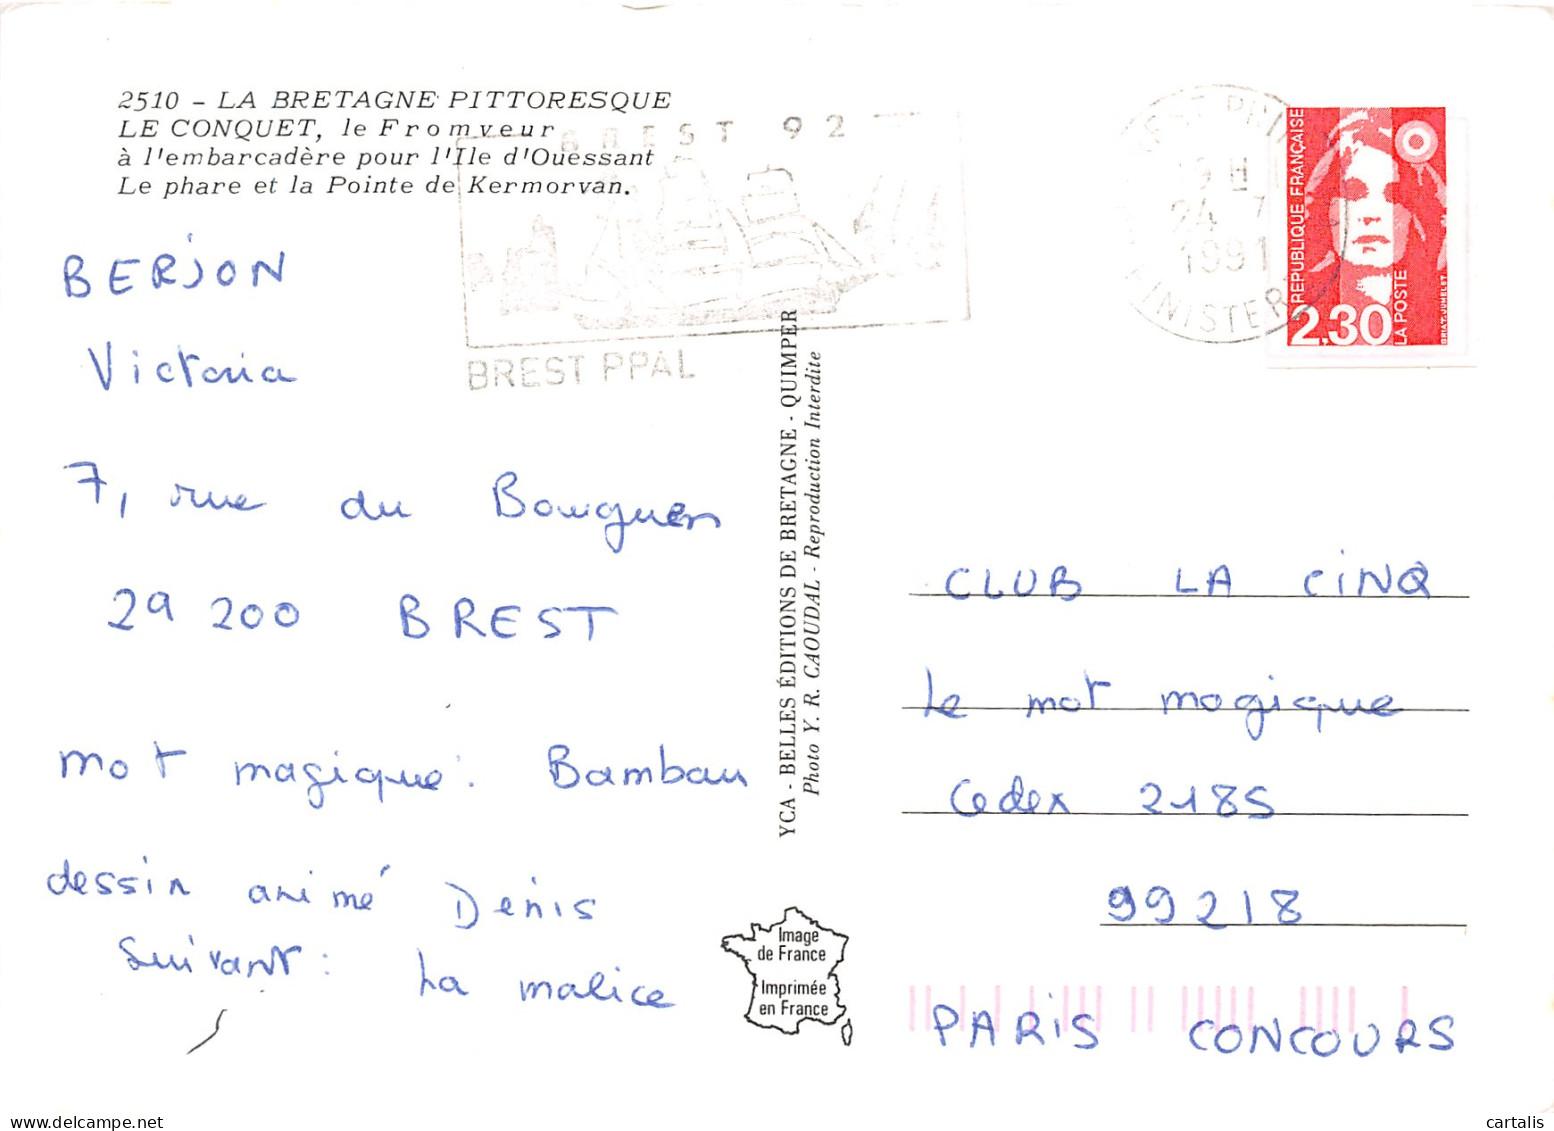 2510 - LA BRETAGNE PITTORESQUE
LE CONQUET, le Fromveur
à l'embarcadère pour l'Ile d'Ouessant
Le phare et la Pointe de Kermorvan.
BREST 92
BREST PPAL
19 H
24 7
1991
FINISTERE
RÉPUBLIQUE FRANÇAISE
2,30
LA POSTE
BRIAT-JUMELET
BERJON
Victoria
7, rue du
29 200 BREST
mot magique : Bambau
dessin animé Denis
Suivant : La malice
YCA - BELLES ÉDITIONS DE BRETAGNE - QUIMPER
Photo Y. R. CAOUDAL - Reproduction Interdite
Image
de France
Imprimée
en France
CLUB LA CINQ
Le mot magique
Cedex 2185
99218
PARIS CONCOURS
cartalis